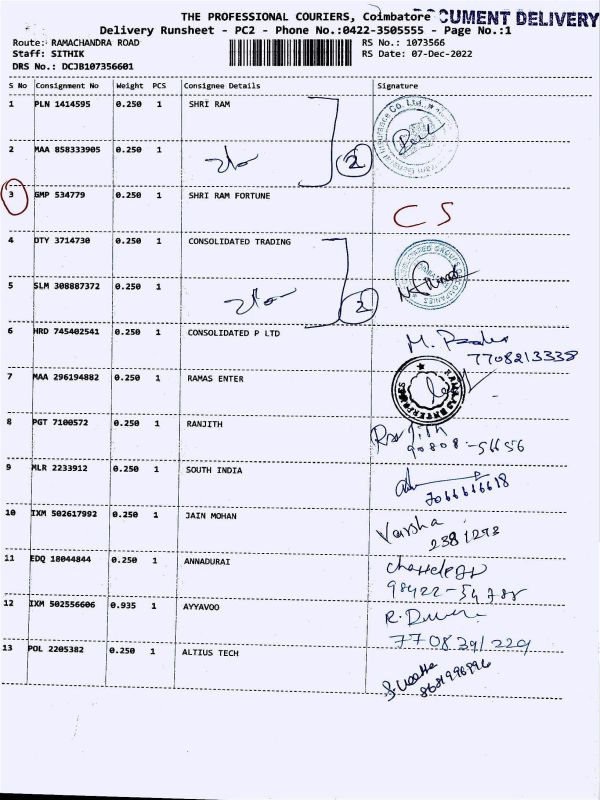 THE PROFESSIONAL COURIERS, Coimbatore
CUMENT DELIVERY
Delivery Runsheet - PC2 - Phone No.:0422-3505555 - Page No.:1
Route: RAMACHANDRA ROAD RS No.: 1073566
Staff: SITHIK RS Date: 07-Dec-2022
DRS No.: DCJB107356601
S No Consignment No Weight PCS Consignee Details Signature
1 PLN 1414595 0.250 1 SHRI RAM
2 MAA 858333905 0.250 1
2
3 GMP 534779 0.250 1 SHRI RAM FORTUNE
CS
4 DTY 3714730 0.250 1 CONSOLIDATED TRADING
5 SLM 308887372 0.250 1
2
6 HRD 745402541 0.250 1 CONSOLIDATED P LTD
7708213338
7 MAA 296194882 0.250 1 RAMAS ENTER
8 PGT 7100572 0.250 1 RANJITH
9 MLR 2233912 0.250 1 SOUTH INDIA
10 IXM 502617992 0.250 1 JAIN MOHAN Varsha
11 EDQ 18044844 0.250 1 ANNADURAI
12 IXM 502556606 0.935 1 AYYAVOO
13 POL 2205382 0.250 1 ALTIUS TECH